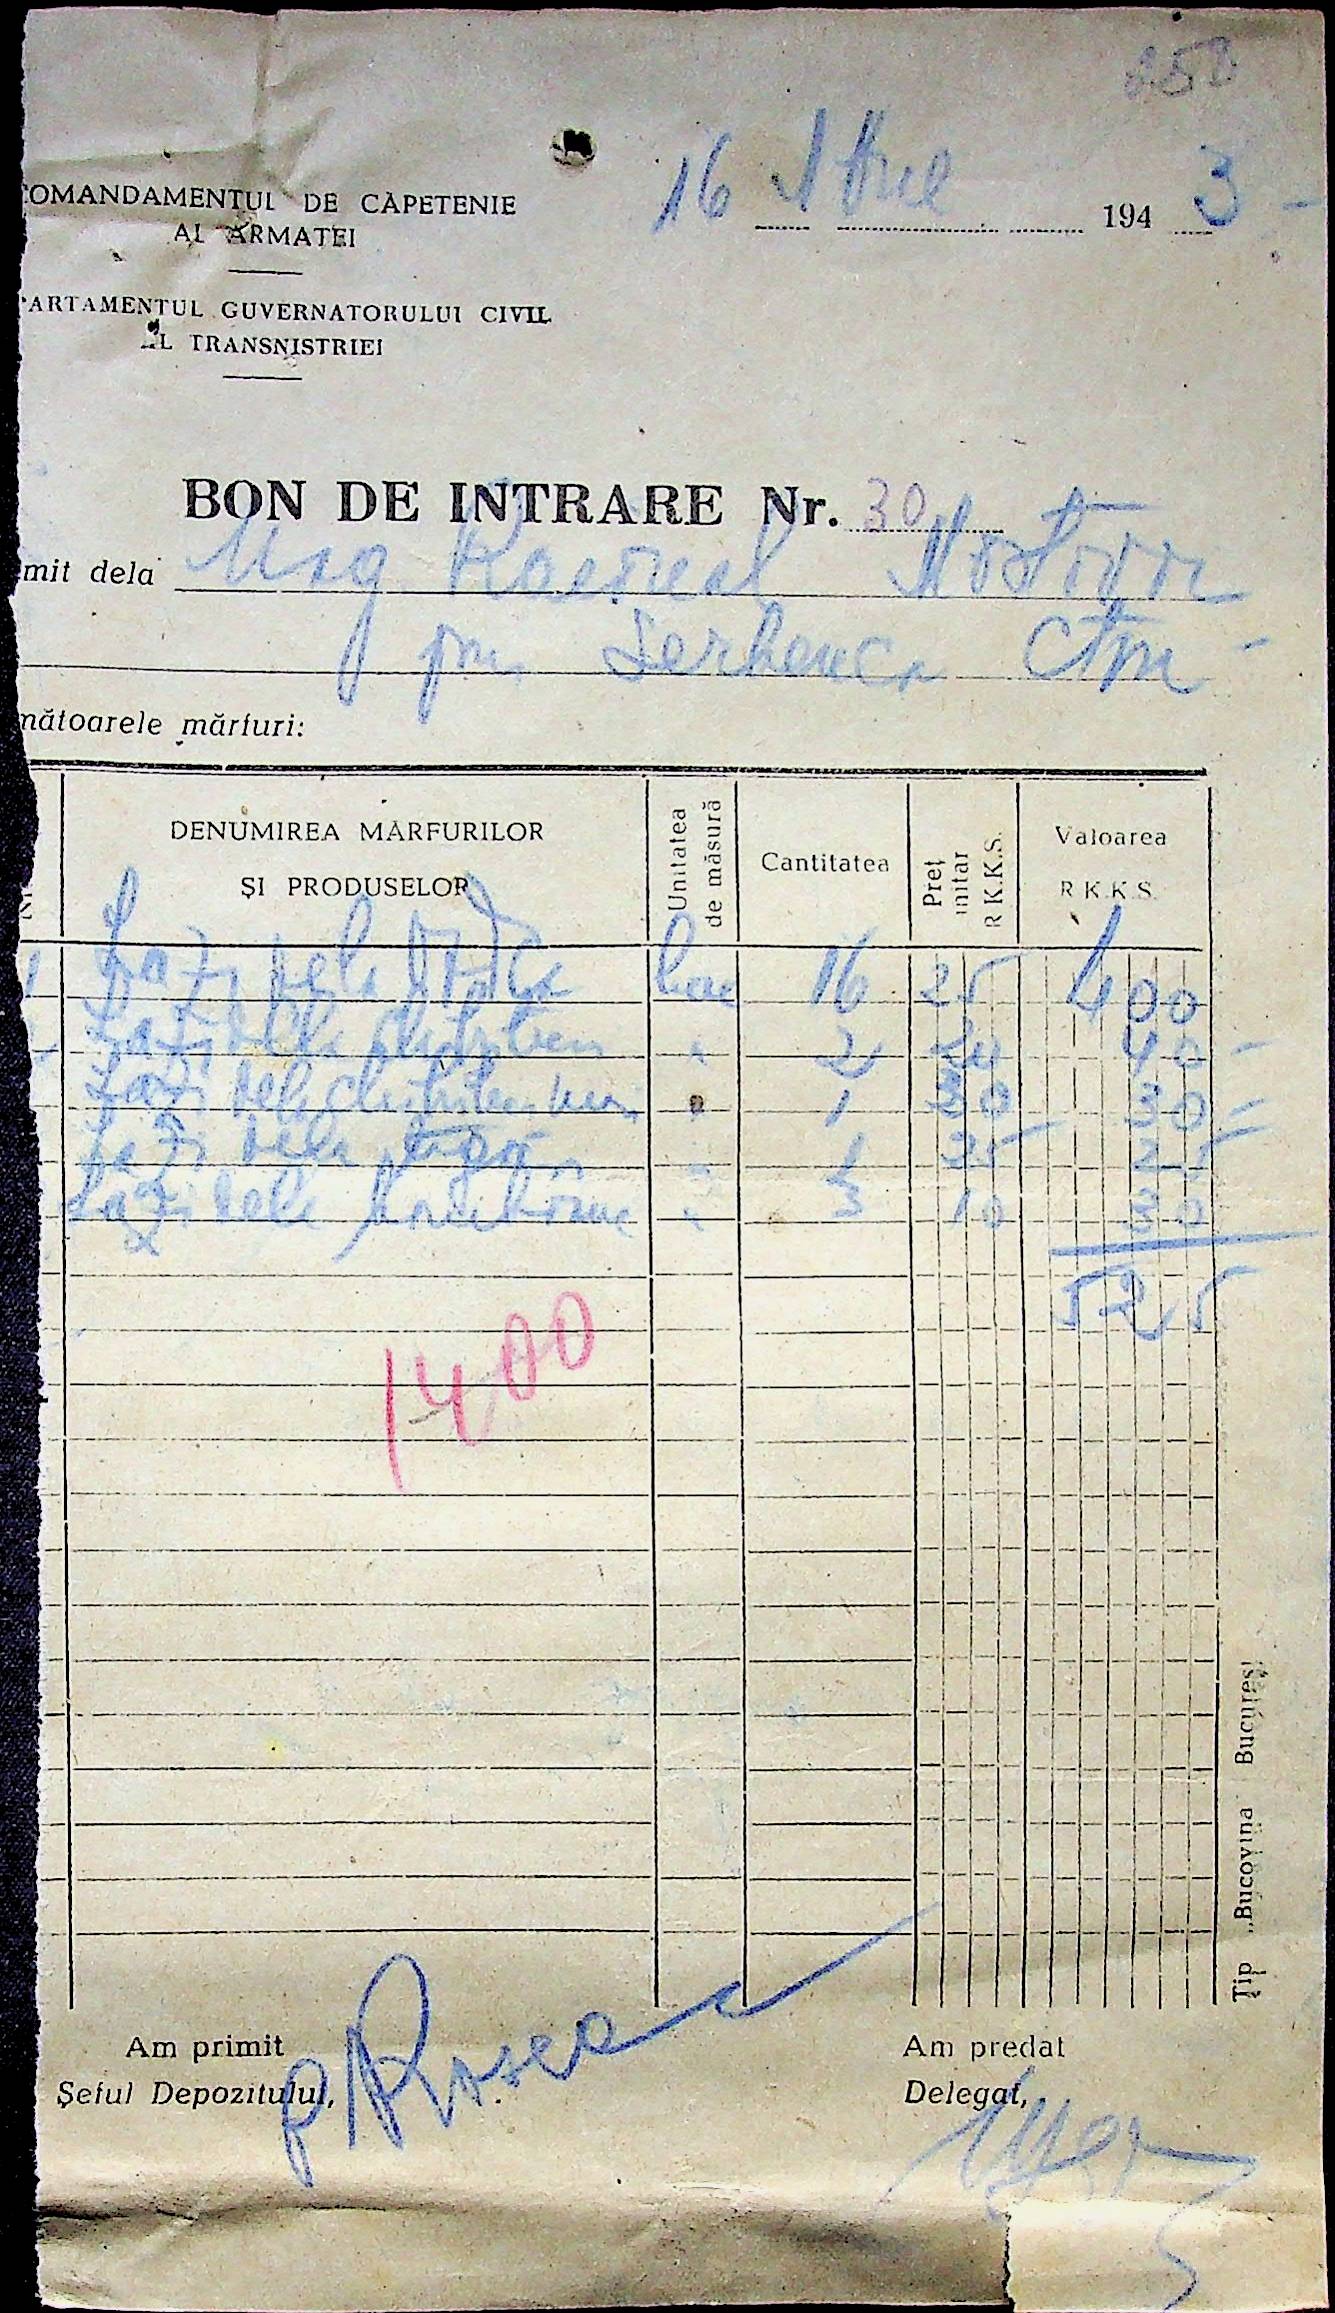 250
16 194 3
COMANDAMENTUL DE CĂPETENIE
AL ARMATEI
PARTAMENTUL GUVERNATORULUI CIVIL
AL TRANSNISTRIEI
BON DE INTRARE Nr. 30
mit dela Mag Raional Mostovoi
prin Serbenca
mătoarele mărfuri:
DENUMIREA MĂRFURILOR
ȘI PRODUSELOR
Unitatea
de măsură
Cantitatea
Preț
initar
R K.K.S.
Valoarea
R K.K.S.
Lazi dela buc 16 25 400
Lazi dela 2 20 40
Lazi dela 1 30 30
Lazi dela 1 25 25
Lazi dela 3 10 30
525
1400
Am primit
Șeful Depozitului,
Am predat
Delegat,
Tip „Bucovina" București